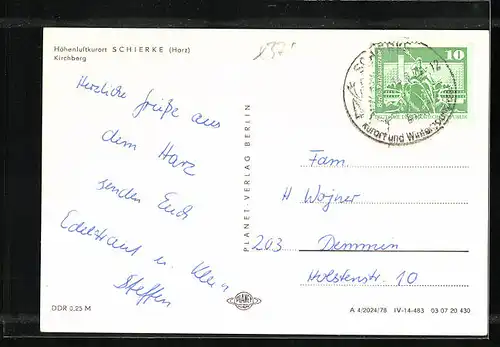 Höhenluftkurort SCHIERKE (Harz)
Kirchberg
10
Kurort und Wintersport
Herzliche Grüße aus
dem Harz
senden Euch
Edeltraut u. Klein
Steffen
PLANET-VERLAG BERLIN
Fam
H Wojner
203 Demmin
Holstenstr. 10
DDR 0,25 M
PLANET
A 4/2024/78 IV-14-483 03 07 20 430